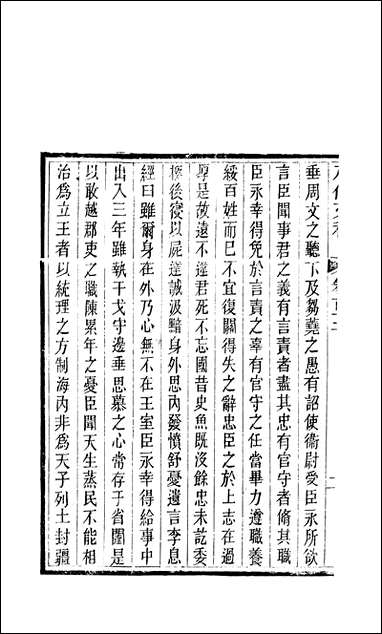 垂周文之聽下及芻蕘之愚有詔使衞尉受臣永所欲
言臣聞事君之義有言責者盡其忠有官守者脩其職
臣永幸得免於言責之辜有官守之任當畢力遵職養
綏百姓而巳不宜復關得失之辭忠臣之於上志在過
厚是故遠不違君死不忘國昔史魚旣沒餘忠未訖委
柩後寑以屍達誠汲黯身外思內發憤舒憂遺言李息
經曰雖爾身在外乃心無不在王室臣永幸得給事中
出入三年雖執干戈守邊垂思慕之心常存于省闥是
以敢越郡吏之職陳累年之憂臣聞天生蒸民不能相
治爲立王者以統理之方制海內非爲天子列土封疆